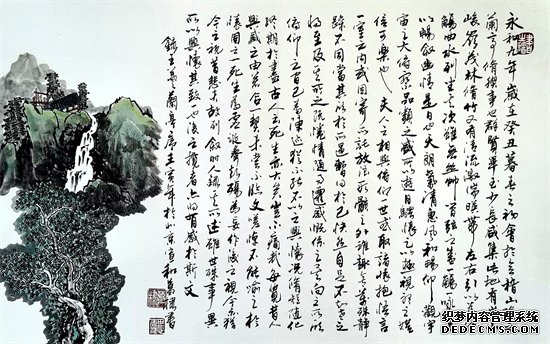 永和九年歲在癸丑暮春之初會於會稽山陰之
蘭亭脩禊事也群賢畢至少長咸集此地有崇山
峻嶺茂林脩竹又有清流激湍映帶左右引以為流
觴曲水列坐其次雖無絲竹管弦之盛一觴一詠亦足
以暢敘幽情是日也天朗氣清惠風和暢仰觀宇
宙之大俯察品類之盛所以遊目騁懷足以極視聽之娛
信可樂也夫人之相與俯仰一世或取諸懷抱悟言
一室之內或因寄所託放浪形骸之外雖趣舍萬殊靜
躁不同當其欣於所遇暫得於己快然自足不知老之
將至及其所之既倦情隨事遷感慨係之矣向之所欣
俯仰之間已為陳迹猶不能不以之興懷況脩短隨化
終期於盡古人云死生亦大矣豈不痛哉每覽昔人
興感之由若合一契未嘗不臨文嗟悼不能喻之於
懷固知一死生為虛誕齊彭殤為妄作後之視今亦猶
今之視昔悲夫故列敘時人錄其所述雖世殊事異
所以興懷其致一也後之覽者亦將有感於斯文
錄王羲之蘭亭序壬寅年於北京書
织梦内容管理系统
DEDECMS.COM